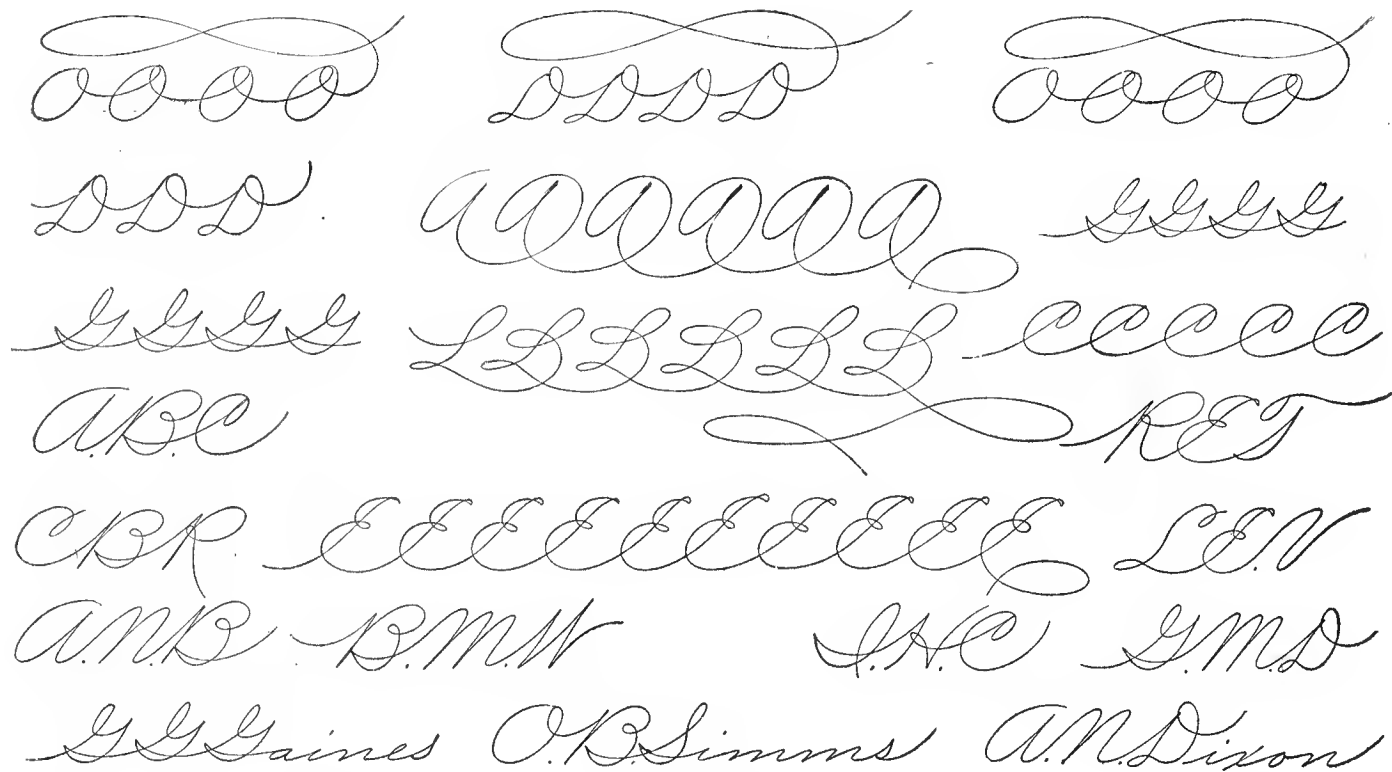 O O O O D D D D O O O O
D D D A A A A A A G G G G
G G G G L L L L L L C C C C C
A.B.C R E T
C B R E E E E E E E E E E L E.V
A.N.B B.M.W I.H.C G.M.D
G G Gaines O.B.Simms A.N.Dixon